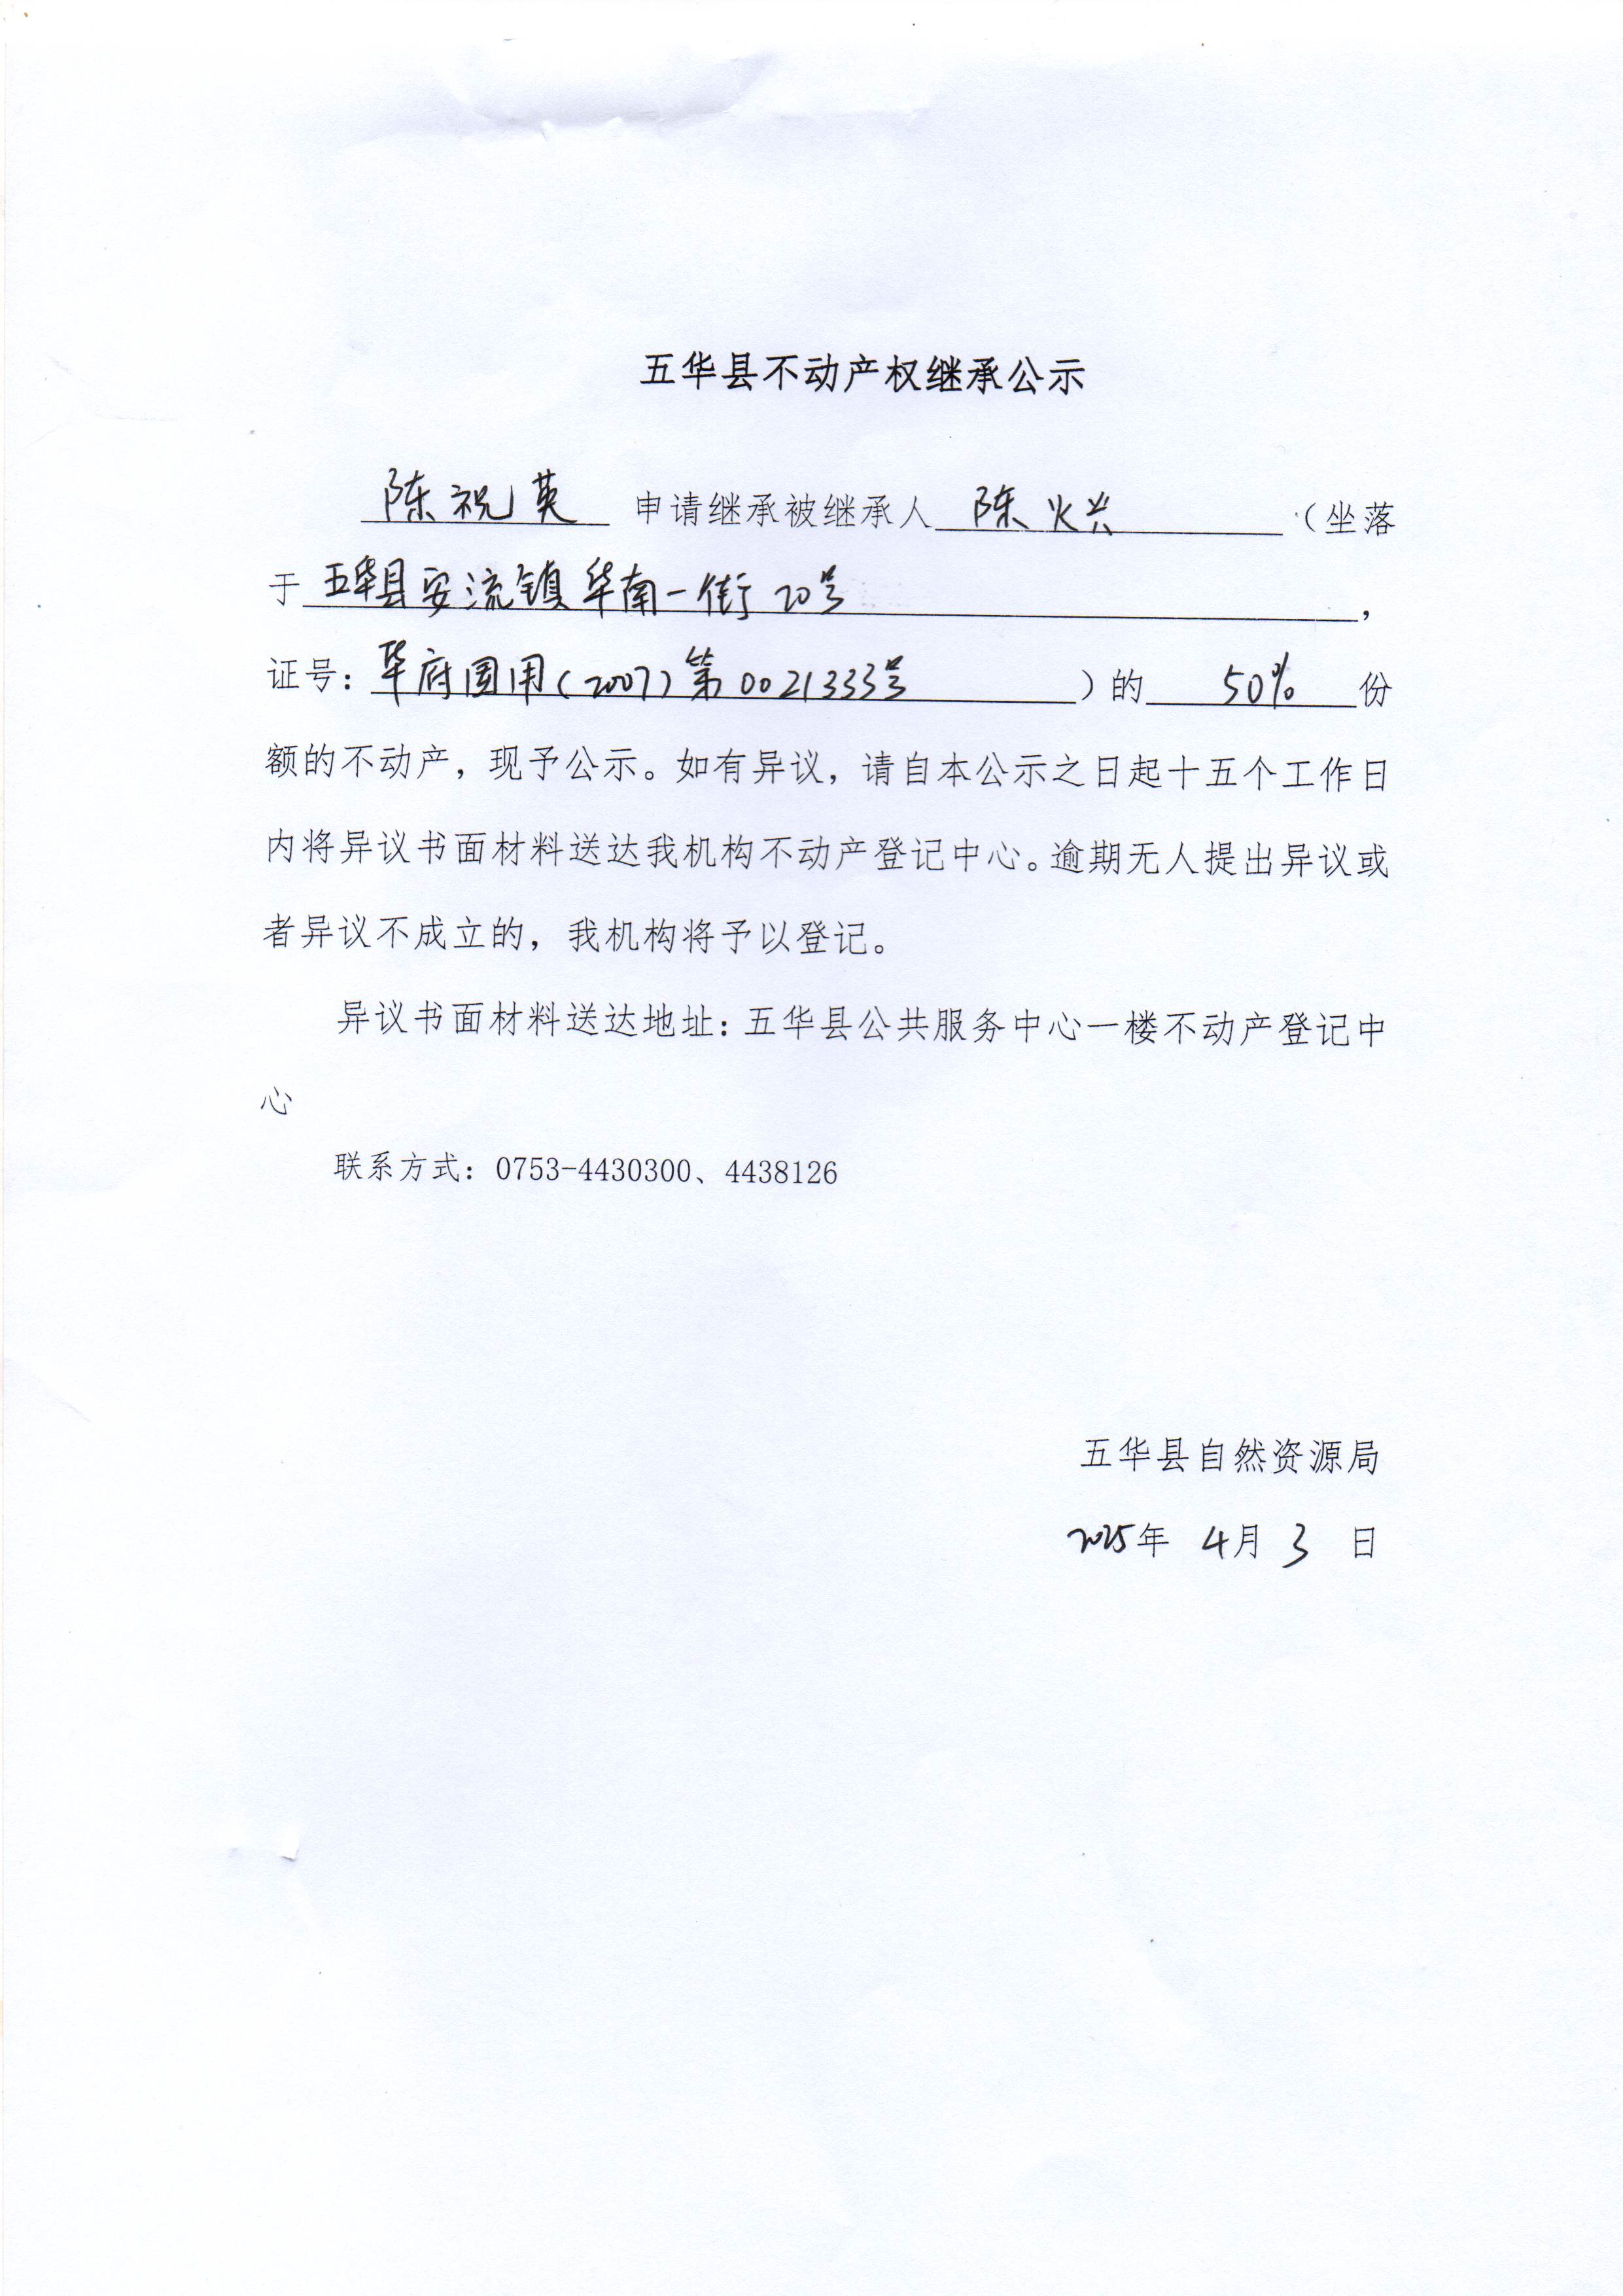 五华县不动产权继承公示
陈祝英 申请继承被继承人 陈火兴 （坐落
于 五华县安流镇华南一街20号 ，
证号：华府国用（2007）第0021333号 ）的 50% 份
额的不动产，现予公示。如有异议，请自本公示之日起十五个工作日
内将异议书面材料送达我机构不动产登记中心。逾期无人提出异议或
者异议不成立的，我机构将予以登记。
异议书面材料送达地址：五华县公共服务中心一楼不动产登记中
心
联系方式：0753-4430300、4438126
五华县自然资源局
2025年 4月 3 日